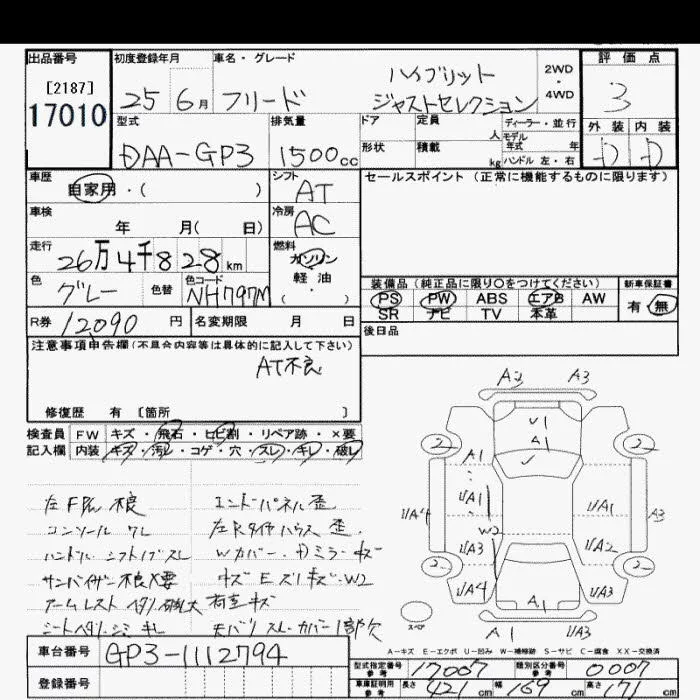 出品番号 初度登録年月 車名・グレード 評価点
[2187]
17010
25 6月 フリード ハイブリット
ジャストセレクション
2WD
・
4WD
3
型式 排気量 ドア 定員 人 ディーラー・並行 外装 内装
DAA-GP3 1500cc 形状 積載 kg モデル年式 年
ハンドル 左・右
D D
車歴 自家用・( ) シフト AT
セールスポイント(正常に機能するものに限ります)
車検 年 月( 日) 冷房 AC
走行 26万4千828km 燃料 ガソリン
軽油
( ・ )
色 グレー 色替 色コード NH797M
装備品(純正品に限り○をつけてください) 新車保証書
PS PW ABS エアB AW 有・無
SR ナビ TV 本革
R券 12090円 名変期限 月 日
後日品
注意事項申告欄(不具合内容等は具体的に記入して下さい)
AT不良
修復歴 有 [箇所 ]
検査員 FW キズ・飛石・ヒビ割・リペア跡・×要
記入欄 内装 キズ・汚レ・コゲ・穴・スレ・キレ・破レ
不良 エンドパネル歪
コンソール ワレ 歪
ハンドル・シフトノブスレ Wカバー・
サンバイザー不良×要 W2
アームレスト
シートヘタリ・シミ キレ スレ・カバー1部欠
A2 A3
U1
A1
2 2
A1
U/A1 U/A1
U/A4 A3
W2
U/A3 U/A2
2 2
U/A4 U/A3
A1 A1
スペア
A-キズ E-エクボ U-凹み W-補修跡 S-サビ C-腐食 XX-交換済
車台番号 GP3-1112794
登録番号
型式指定番号 参考 17007 類別区分番号 参考 0007
車庫証明用 参考 長さ 421cm 幅 169cm 高さ 171cm